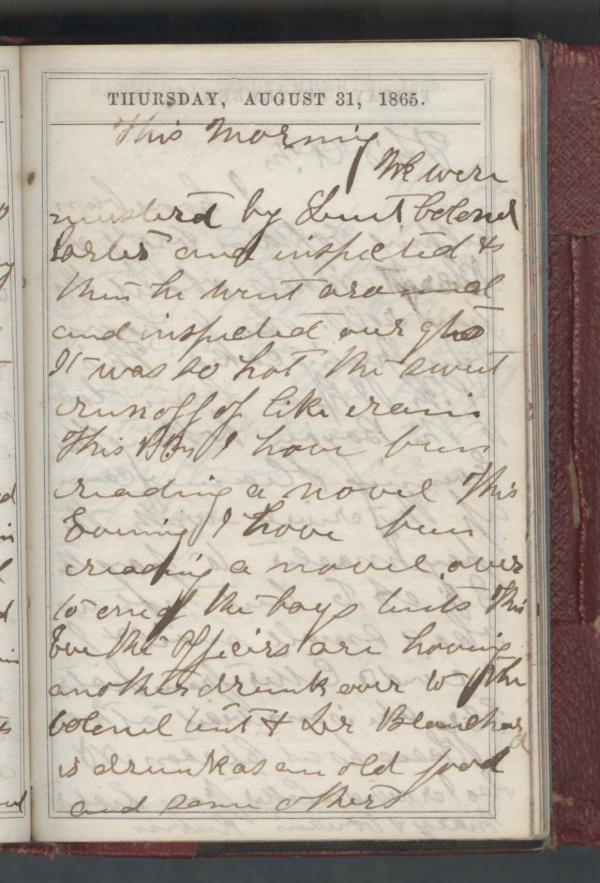 THURSDAY, AUGUST 31, 1865.
This Morning
We were
musterd by Lieut Colonel
and inspected &
then he went around
and inspected our qts
It was so hot the swet
run off of like rain
This P.M. I have bun
reading a novel This
Evening I have bun
reading a novel over
to one of the boys tents This
Eve the Officirs are having
another drunk over to the
Colonel tent &
is drunk as an old
and some others